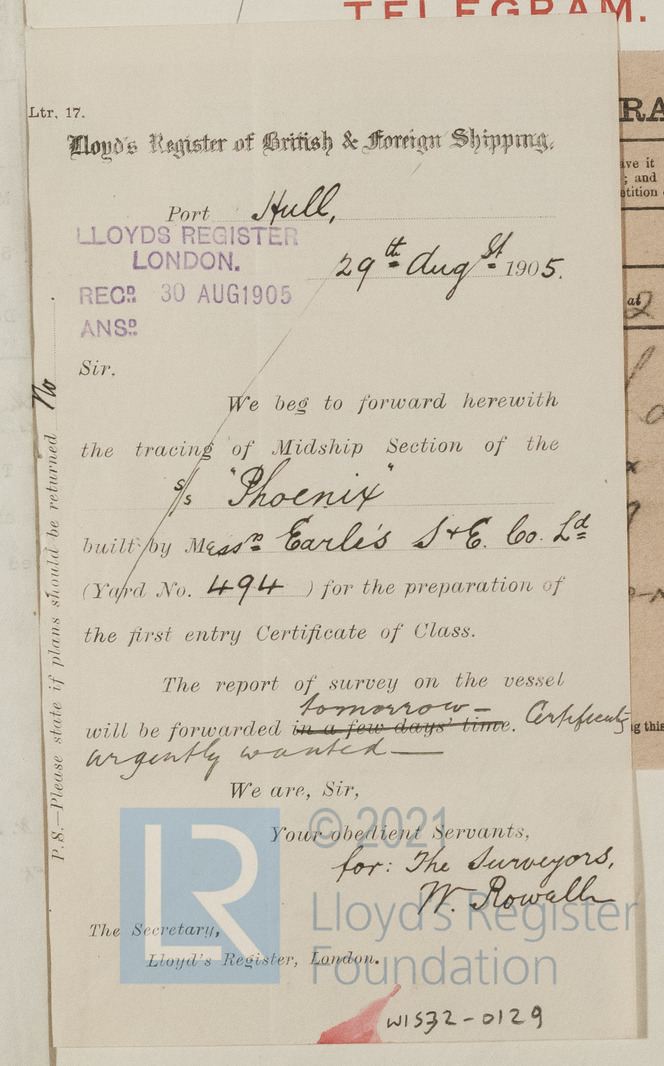 TELEGRAM.
Ltr. 17.
Lloyd's Register of British & Foreign Shipping.
Port Hull,
LLOYDS REGISTER
LONDON.
29th Augst 1905.
RECD 30 AUG1905
ANSD
Sir.
We beg to forward herewith
the tracing of Midship Section of the
s/s "Phoenix"
built by Messrs Earle's S & E. Co. Ld
(Yard No. 494 ) for the preparation of
the first entry Certificate of Class.
The report of survey on the vessel
tomorrow –
will be forwarded in a few days' time. Certificate
urgently wanted —
We are, Sir,
Your obedient Servants,
for: The Surveyors,
W. Rowell
The Secretary,
Lloyd's Register, London.
P.S.—Please state if plans should be returned No
W1532-0129
LR
© 2021
Lloyd's Register
Foundation
RA
ave it
; and
etition
at 2
g this